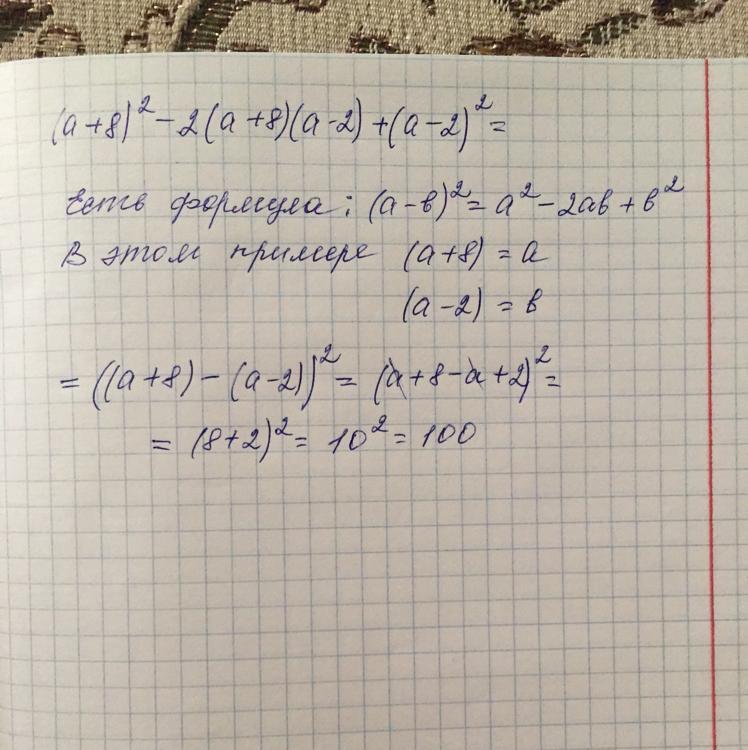 (a+8)² - 2(a+8)(a-2) + (a-2)² =
Есть формула: (a-в)² = a² - 2aв + в²
В этом примере (a+8) = a
(a-2) = в
= ((a+8) - (a-2))² = (a+8-a+2)² =
= (8+2)² = 10² = 100